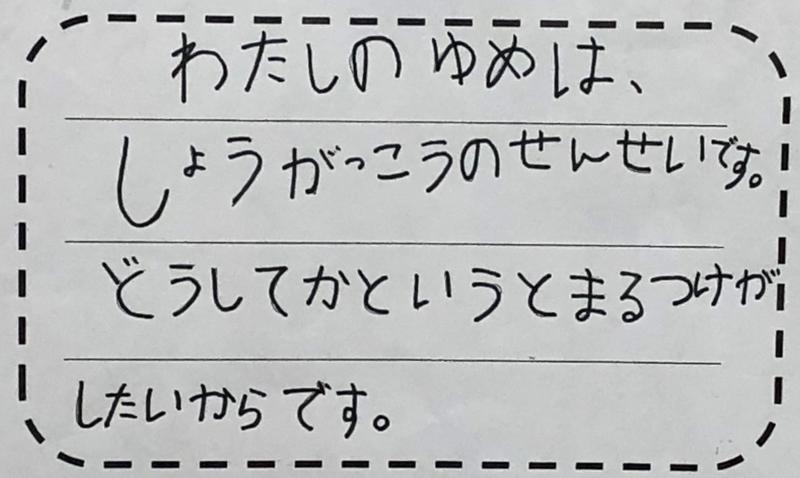 わたしの ゆめは、
しょうがっこうのせんせいです。
どうしてかというとまるつけが
したいからです。